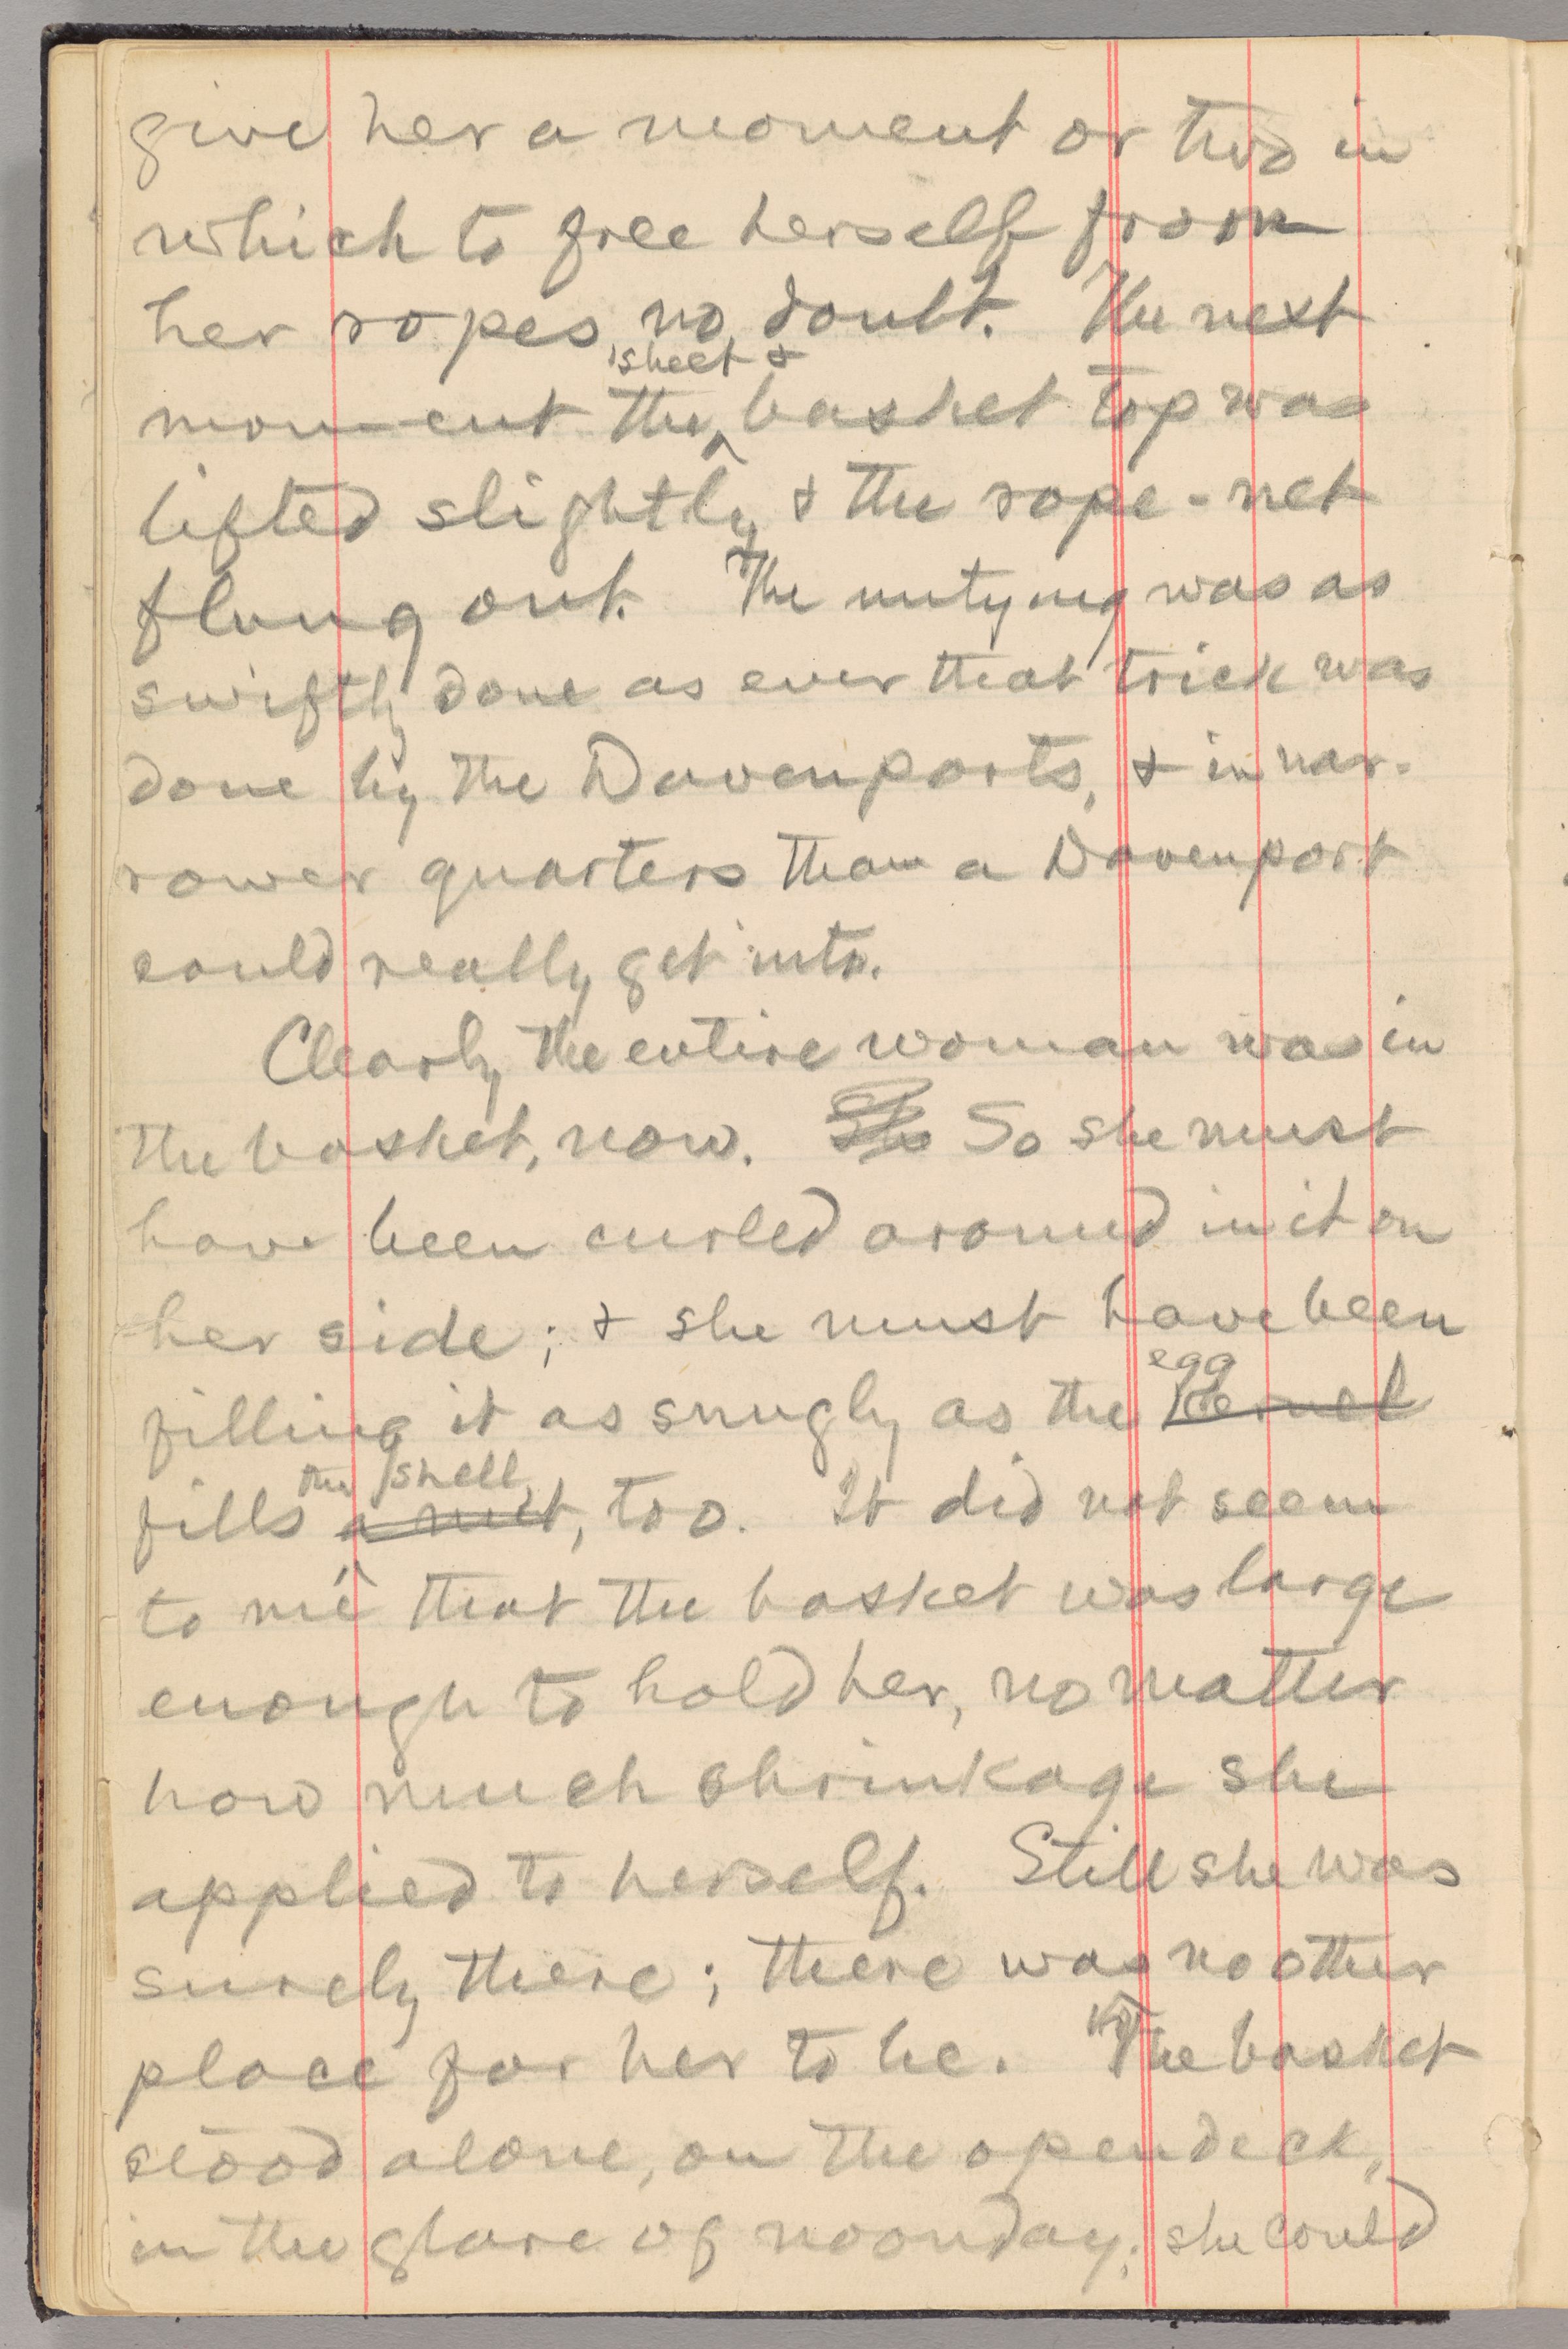 give her a moment or two in
which to free herself from
her ropes, no doubt. The next
sheet &
moment the basket top was
lifted slightly & the rope-net
flung out. The untying was as
swiftly done as ever that trick was
done by the Davenports, & in nar-
rower quarters than a Davenport
could really get into.
Clearly the entire woman was in
the basket, now. She So she must
have been curled around in it on
her side; & she must have been
egg
filling it as snugly as the kernel
the shell,
fills a nut, too. It did not seem
to me that the basket was large
enough to hold her, no matter
how much shrinkage she
applied to herself. Still she was
surely there; there was no other
place for her to be. The basket
stood alone, on the open deck,
in the glare of noonday; she could